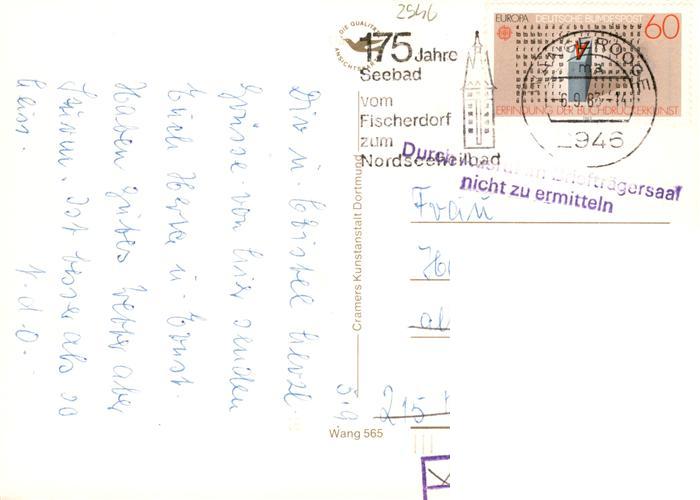 2946
DIE QUALITÄTS
ANSICHTSKARTE
175 Jahre
Seebad
vom
Fischerdorf
zum
Nordseeheilbad
EUROPA DEUTSCHE BUNDESPOST 60
A
ERFINDUNG DER BUCHDRUCKERKUNST
WANGEROOGE
-6.9.83
2946
im Briefträgersaal
nicht zu ermitteln
Frau
215
Dir u. Christel herzl.
Grüsse von hier senden
Euch Herta u. Ernst.
Haben gutes Wetter aber
Sturm. Ist besser als so
heiss.
5.9
Cramers Kunstanstalt Dortmund
Wang 565
K